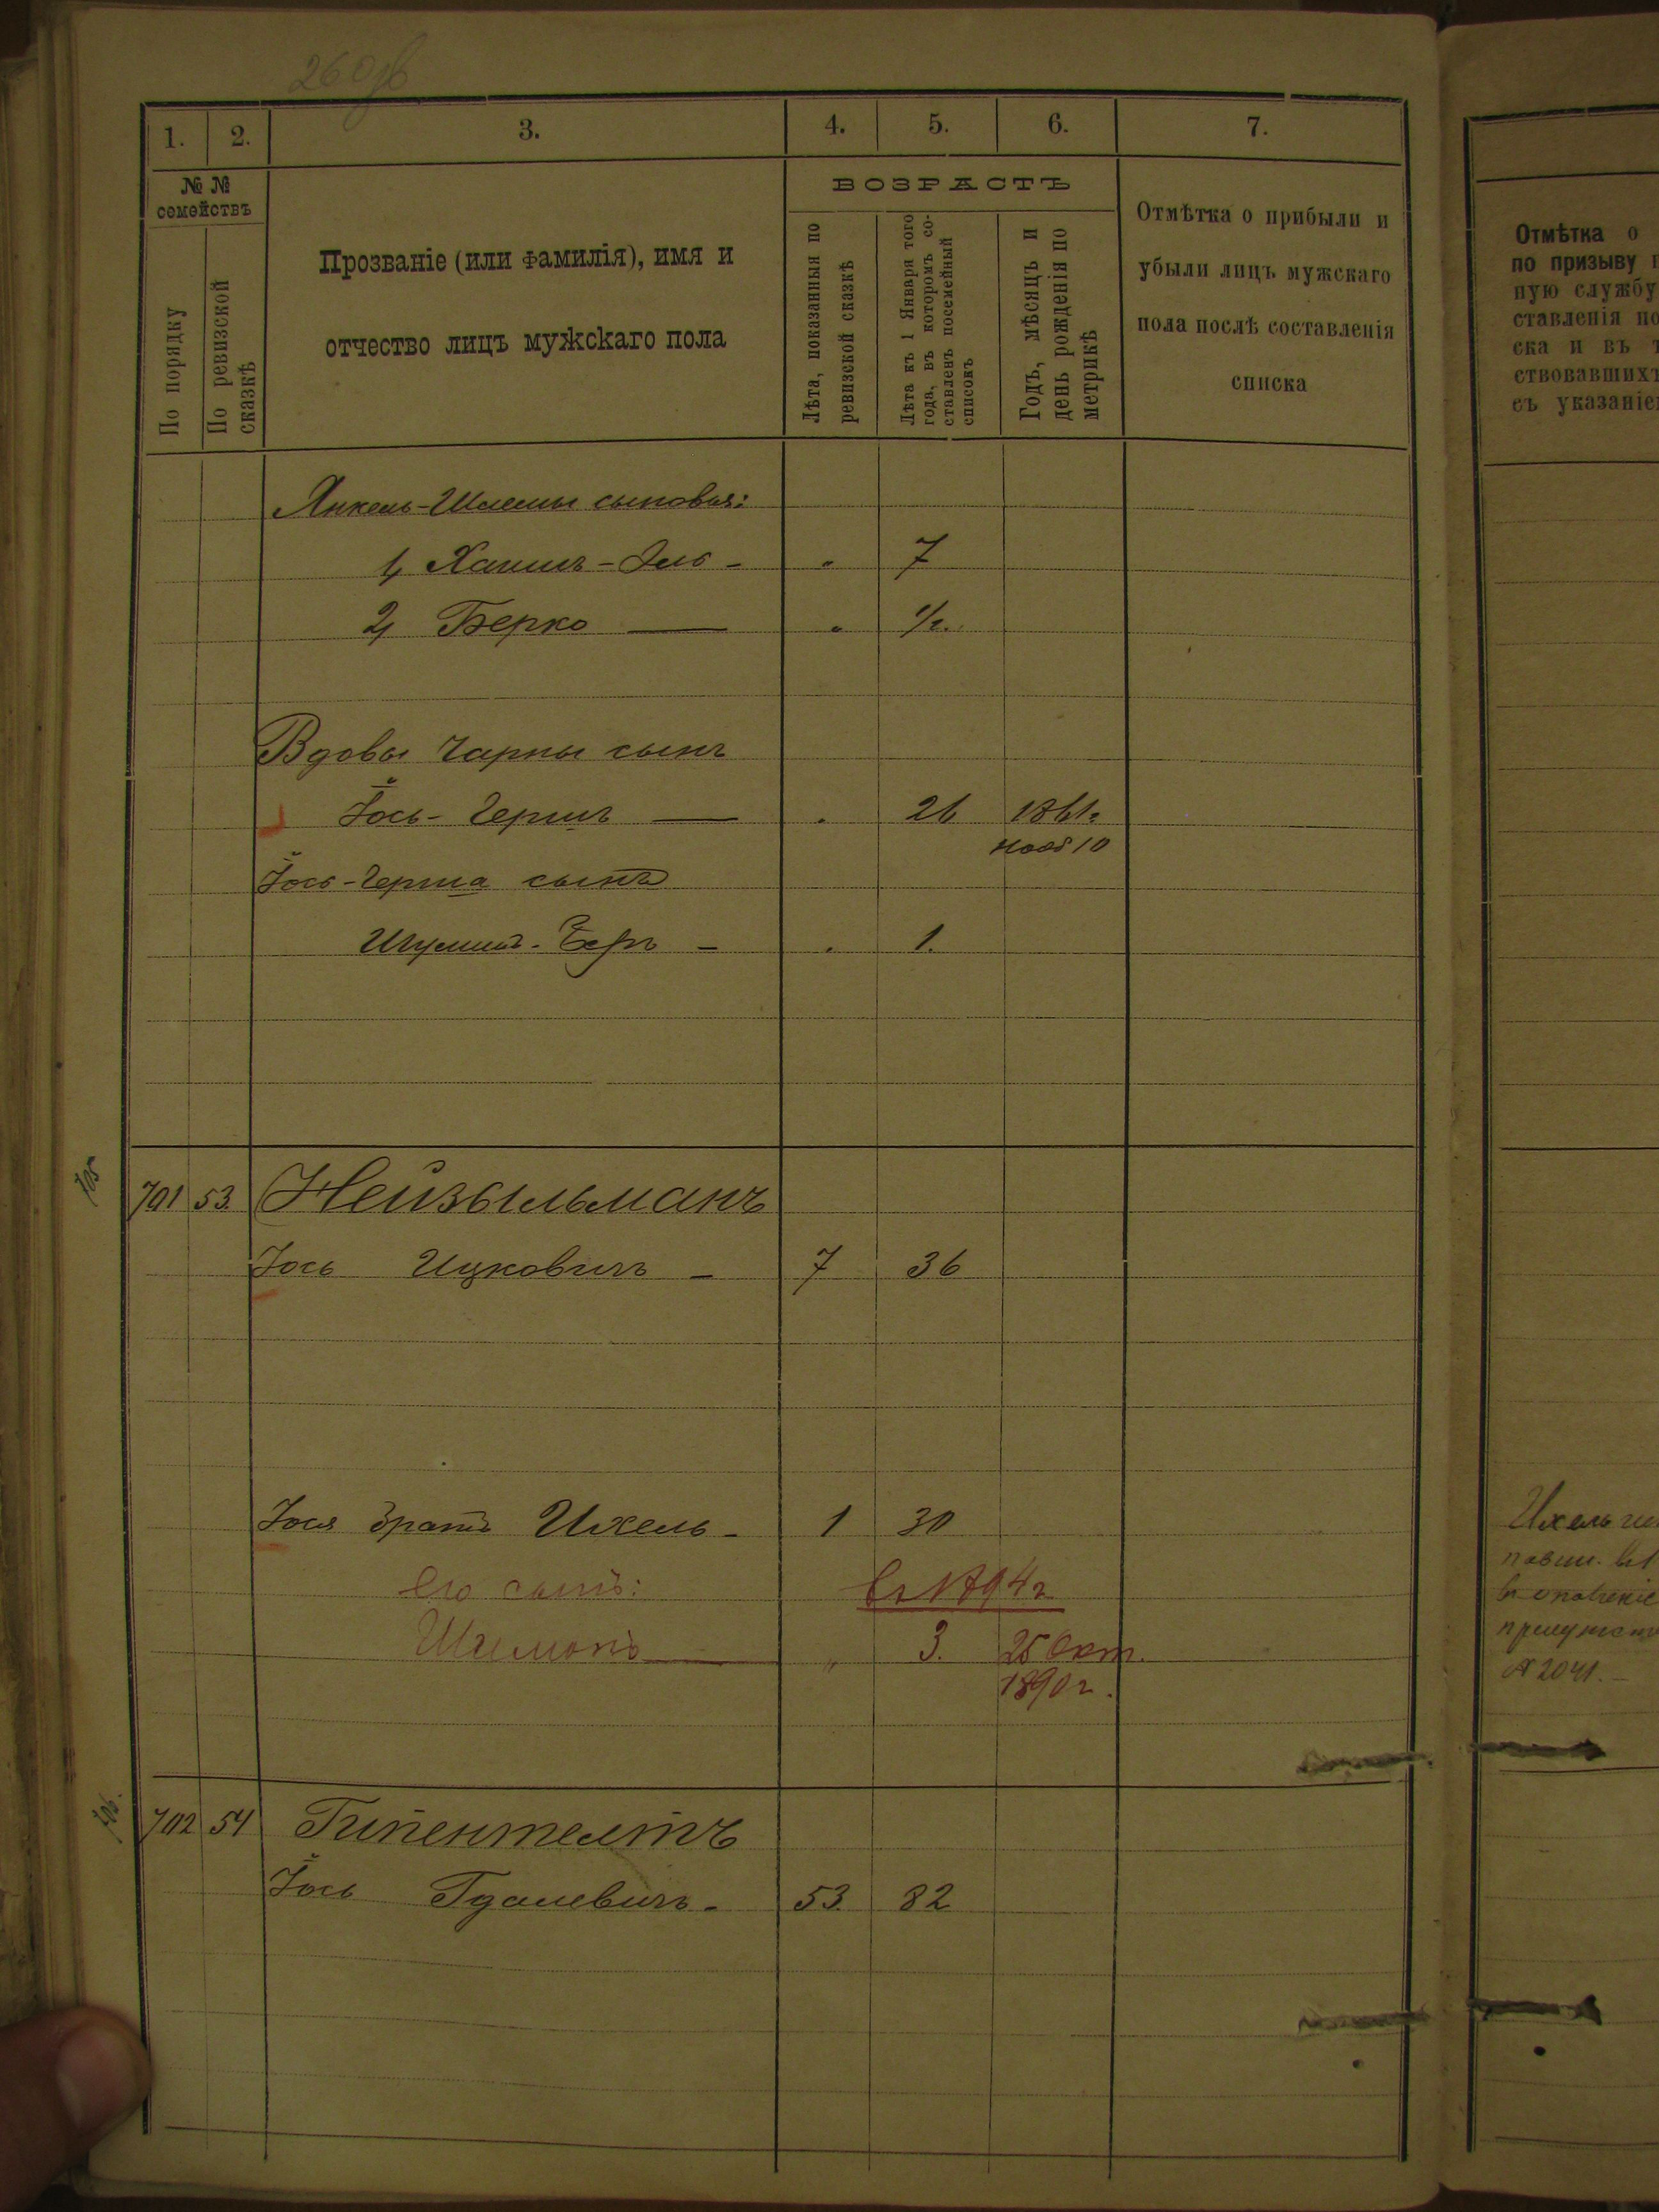 260об
1. 2. 3. 4. 5. 6. 7.
№ №
семействъ
По порядку
По ревизской
сказкѣ
Прозваніе (или фамилія), имя и
отчество лицъ мужскаго пола
ВОЗРАСТЪ
Лѣта, показанныя по
ревизской сказкѣ
Лѣта къ 1 Января того
года, въ которомъ со-
ставленъ посемейный
списокъ
Годъ, мѣсяцъ и
день рожденія по
метрикѣ
Отмѣтка о прибыли и
убыли лицъ мужскаго
пола послѣ составленія
списка
Янкель-Шлемы сыновья:
1, Хаимъ-Эль - " 7
2, Берко — " 1/2.
Вдовы Чарны сынъ
Іось-Гершъ — " 26 1861г.
нояб 10
Іось-Герша сынъ
Шулимъ-Беръ - " 1.
701 53. Нейзыльманъ
Іось Ицковичъ - 7 36
Іося братъ Ихель - 1 30
Его сынъ: Въ 1894г
Шимонъ — " 3. 25 Окт.
1890г.
702 54
Іось Гдалевичъ. 53. 82
Отмѣтка о
по призыву
ную службу
ставленія по
ска и въ
ствовавшихъ
съ указаніе
Ихель
№ 2041. -